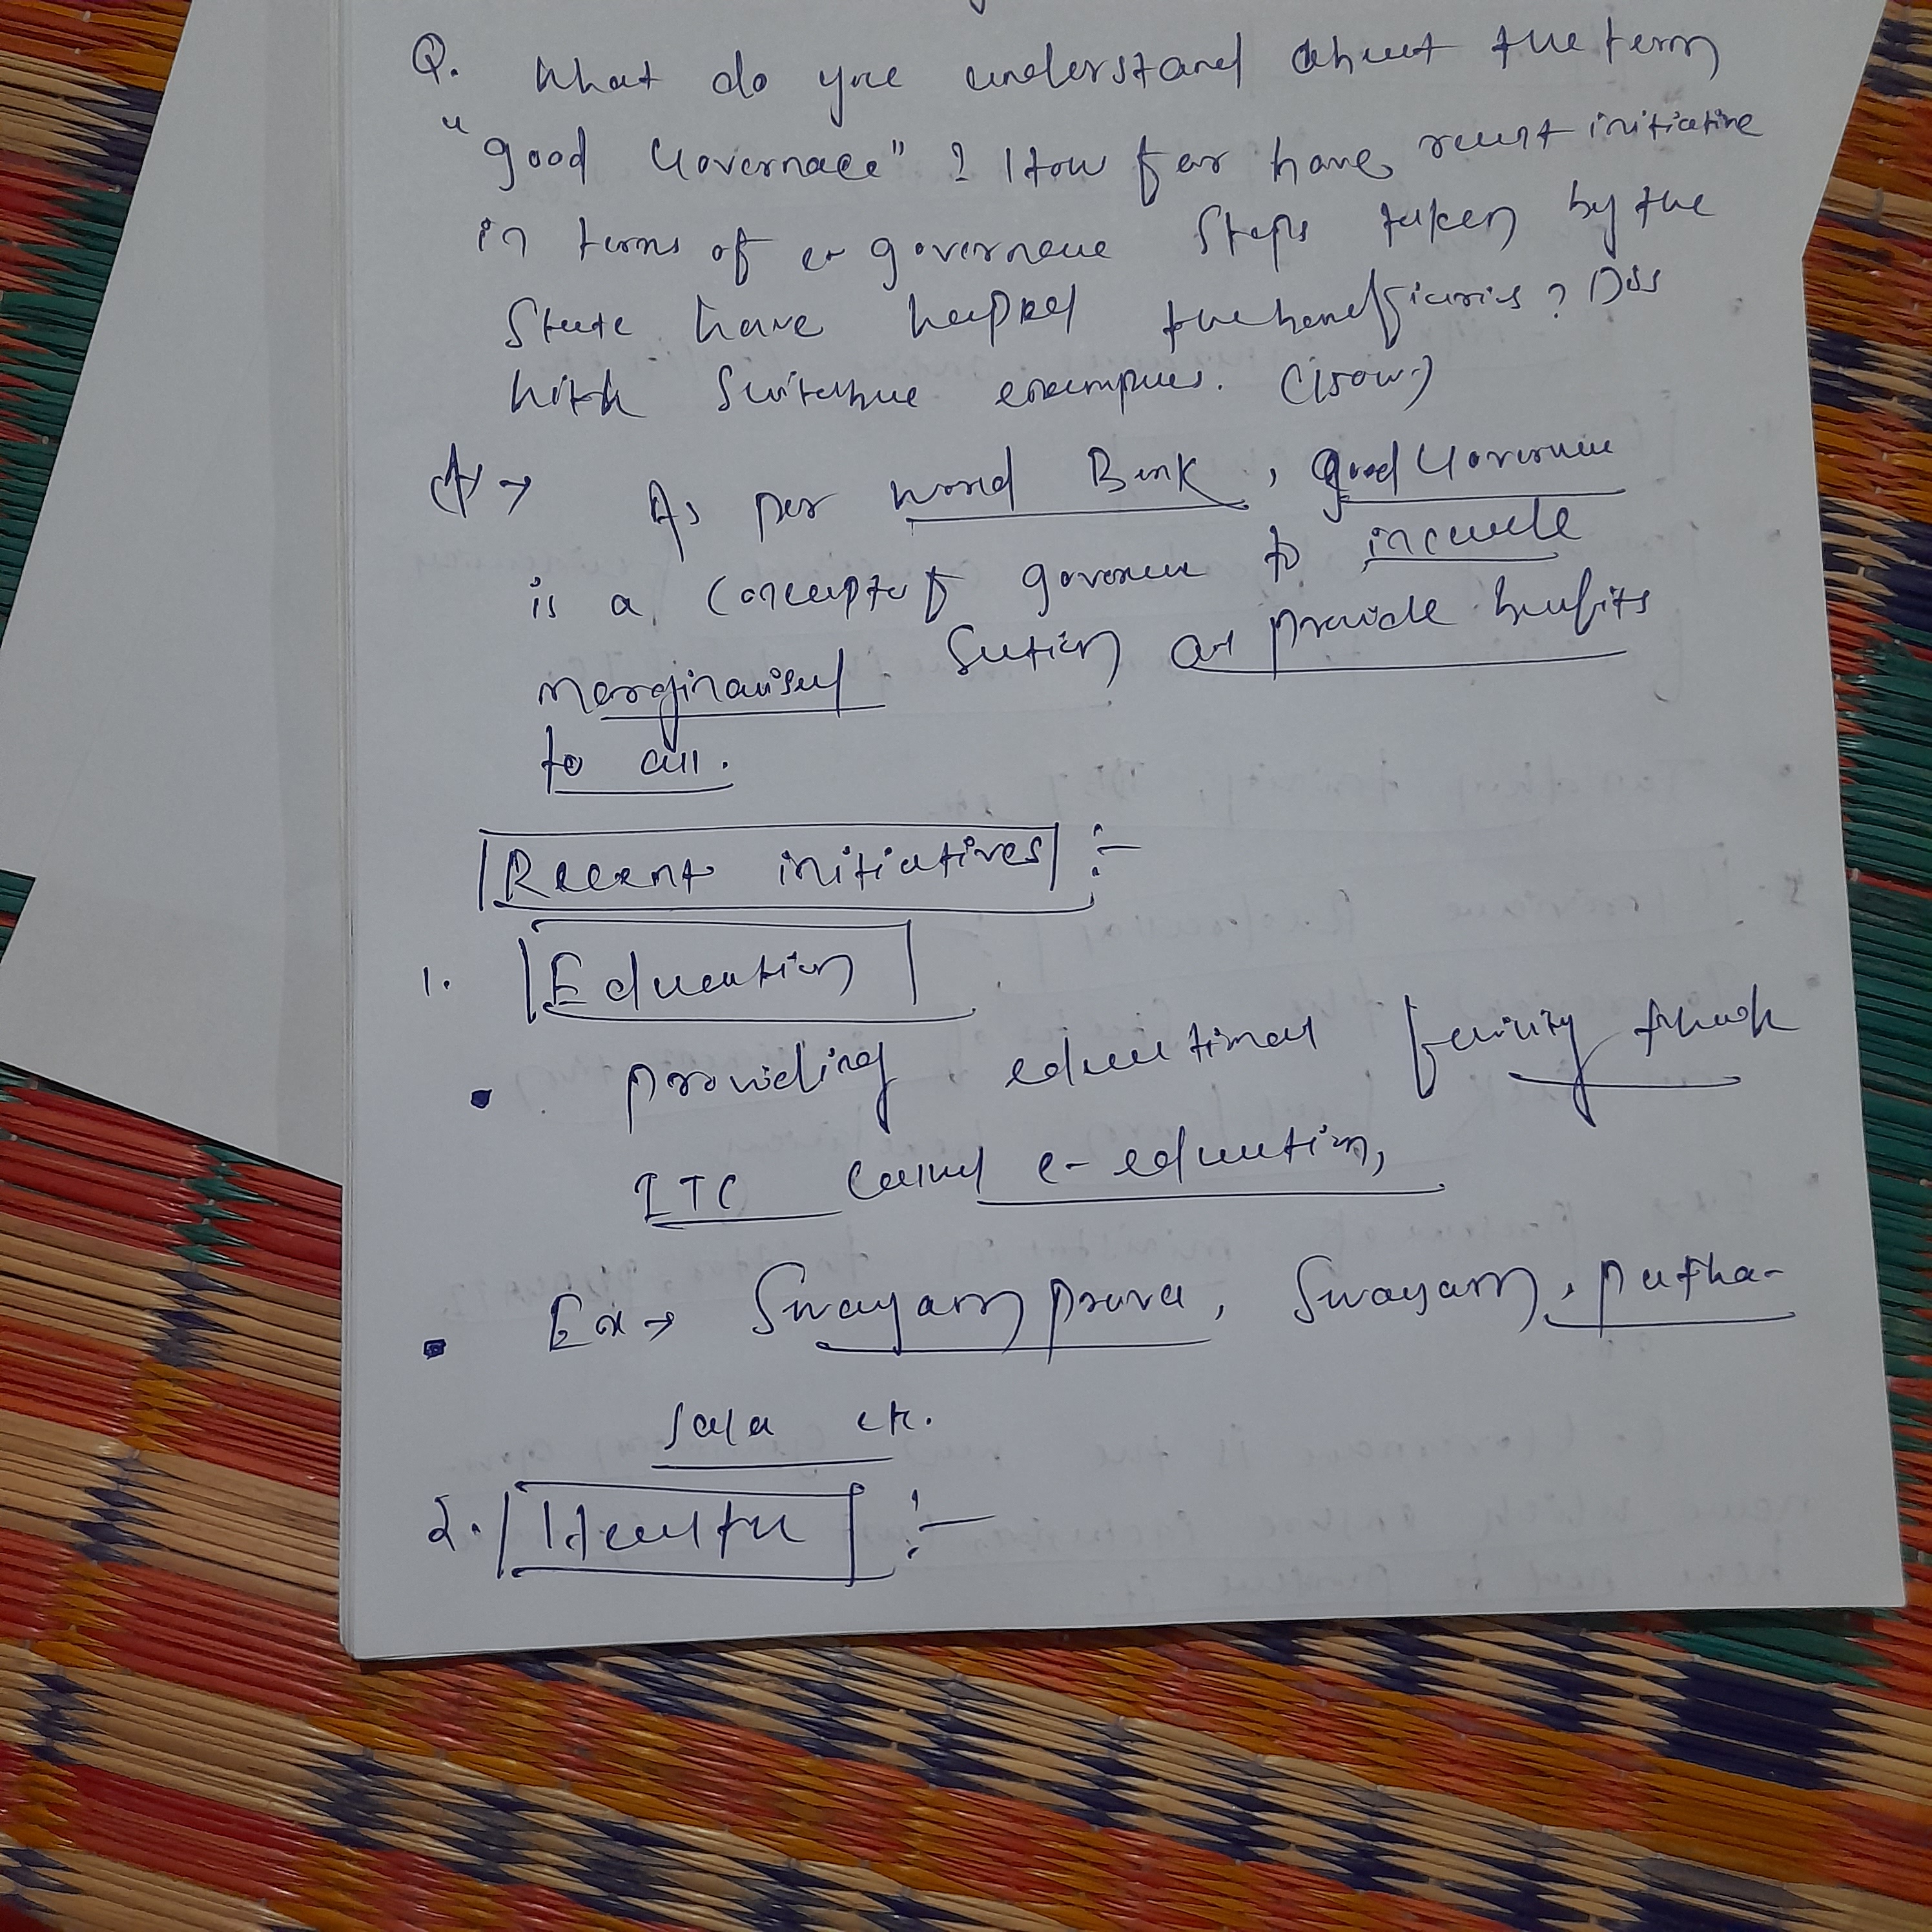 Q. What do you understand about the term
"good Governace" ? How far have recent initiative
in terms of e-governence steps taken by the
State have helped the beneficiaries? Diss
with suitable examples. (150w)
A → As per World Bank, good Governence
is a concept of governence to include
marginalised section and provide benefits
to all.
Recent initiatives :-
1. Education
• providing educational facility through
ITC called e-education,
• Ex → Swayam prava, Swayam, patha-
sala etc.
2. Health :-